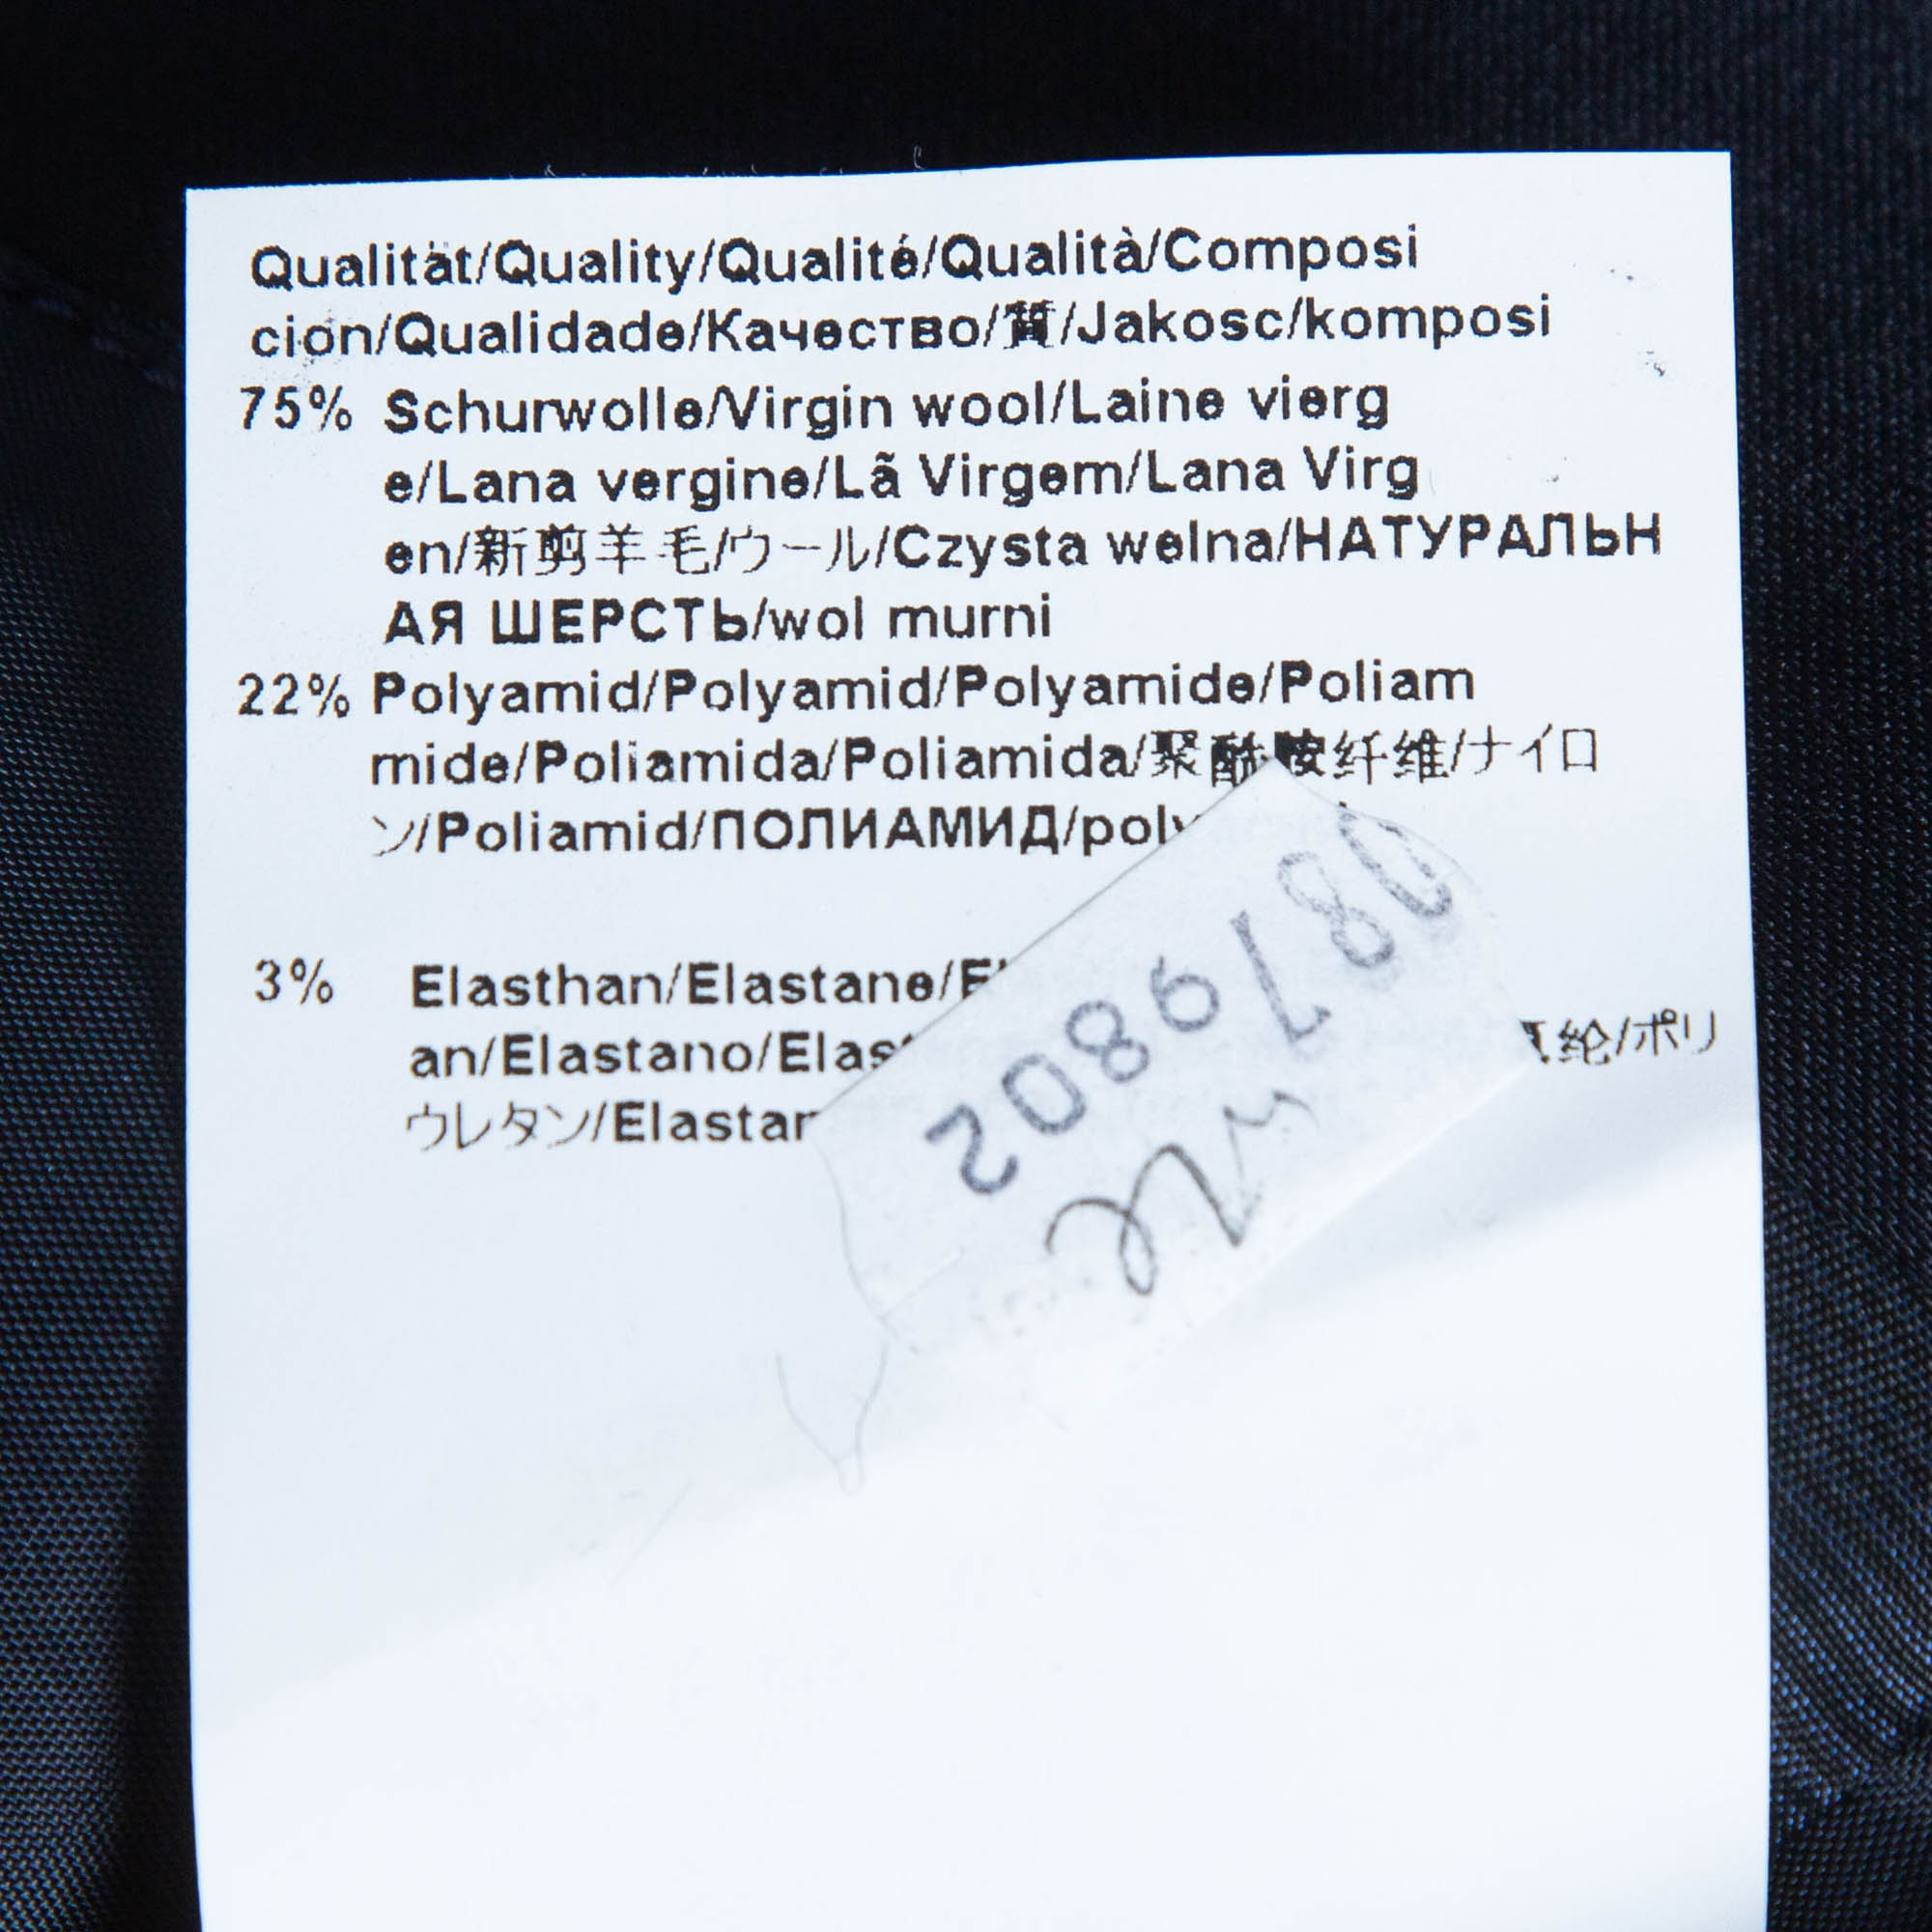 Qualität/Quality/Qualité/Qualità/Composi
cion/Qualidade/Качество/質/Jakosc/komposi
75% Schurwolle/Virgin wool/Laine vierg
e/Lana vergine/Lã Virgem/Lana Virg
en/新剪羊毛/ウール/Czysta welna/НАТУРАЛЬН
АЯ ШЕРСТЬ/wol murni
22% Polyamid/Polyamid/Polyamide/Poliam
mide/Poliamida/Poliamida/聚酰胺纤维/ナイロ
ン/Poliamid/ПОЛИАМИД/poly
3% Elasthan/Elastane/
an/Elastano/ 纶/ポリ
ウレタン/